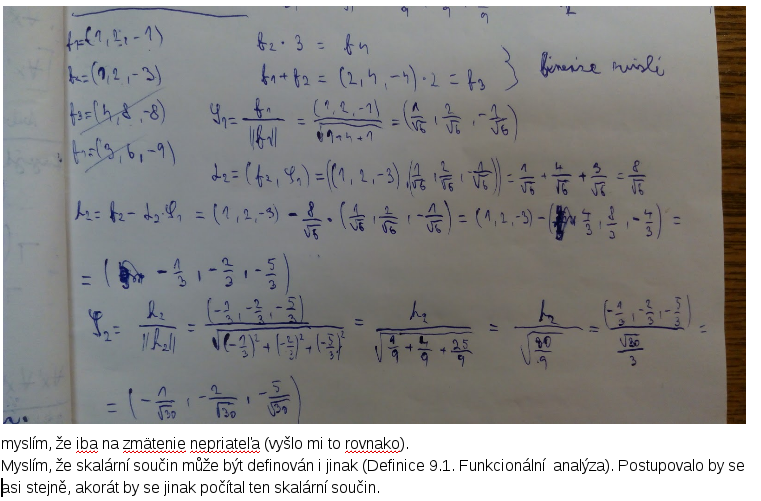 f₁=(1, 2, -1)
f₂=(1, 2, -3)
f₃=(4, 8, -8)
f₄=(3, 6, -9)
f₂ · 3 = f₄
f₁ + f₂ = (2, 4, -4) · 2 = f₃
φ₁ = f₁/||f₁|| = (1, 2, -1)/√(1+4+1) = (1/√6, 2/√6, -1/√6)
α₂ = (f₂, φ₁) = ((1, 2, -3), (1/√6, 2/√6, -1/√6)) = 1/√6 + 4/√6 + 3/√6 = 8/√6
h₂ = f₂ - α₂·φ₁ = (1, 2, -3) - 8/√6 · (1/√6, 2/√6, -1/√6) = (1, 2, -3) - (4/3, 8/3, -4/3) =
= (-1/3, -2/3, -5/3)
φ₂ = h₂/||h₂|| = (-1/3, -2/3, -5/3)/√((-1/3)²+(-2/3)²+(-5/3)²) = h₂/√(1/9+4/9+25/9) = h₂/√(30/9) = (-1/3, -2/3, -5/3)/(√30/3) =
= (-1/√30, -2/√30, -5/√30)
myslím, že iba na zmätenie nepriateľa (vyšlo mi to rovnako).
Myslím, že skalární součin může být definován i jinak (Definice 9.1. Funkcionální analýza). Postupovalo by se
asi stejně, akorát by se jinak počítal ten skalární součin.